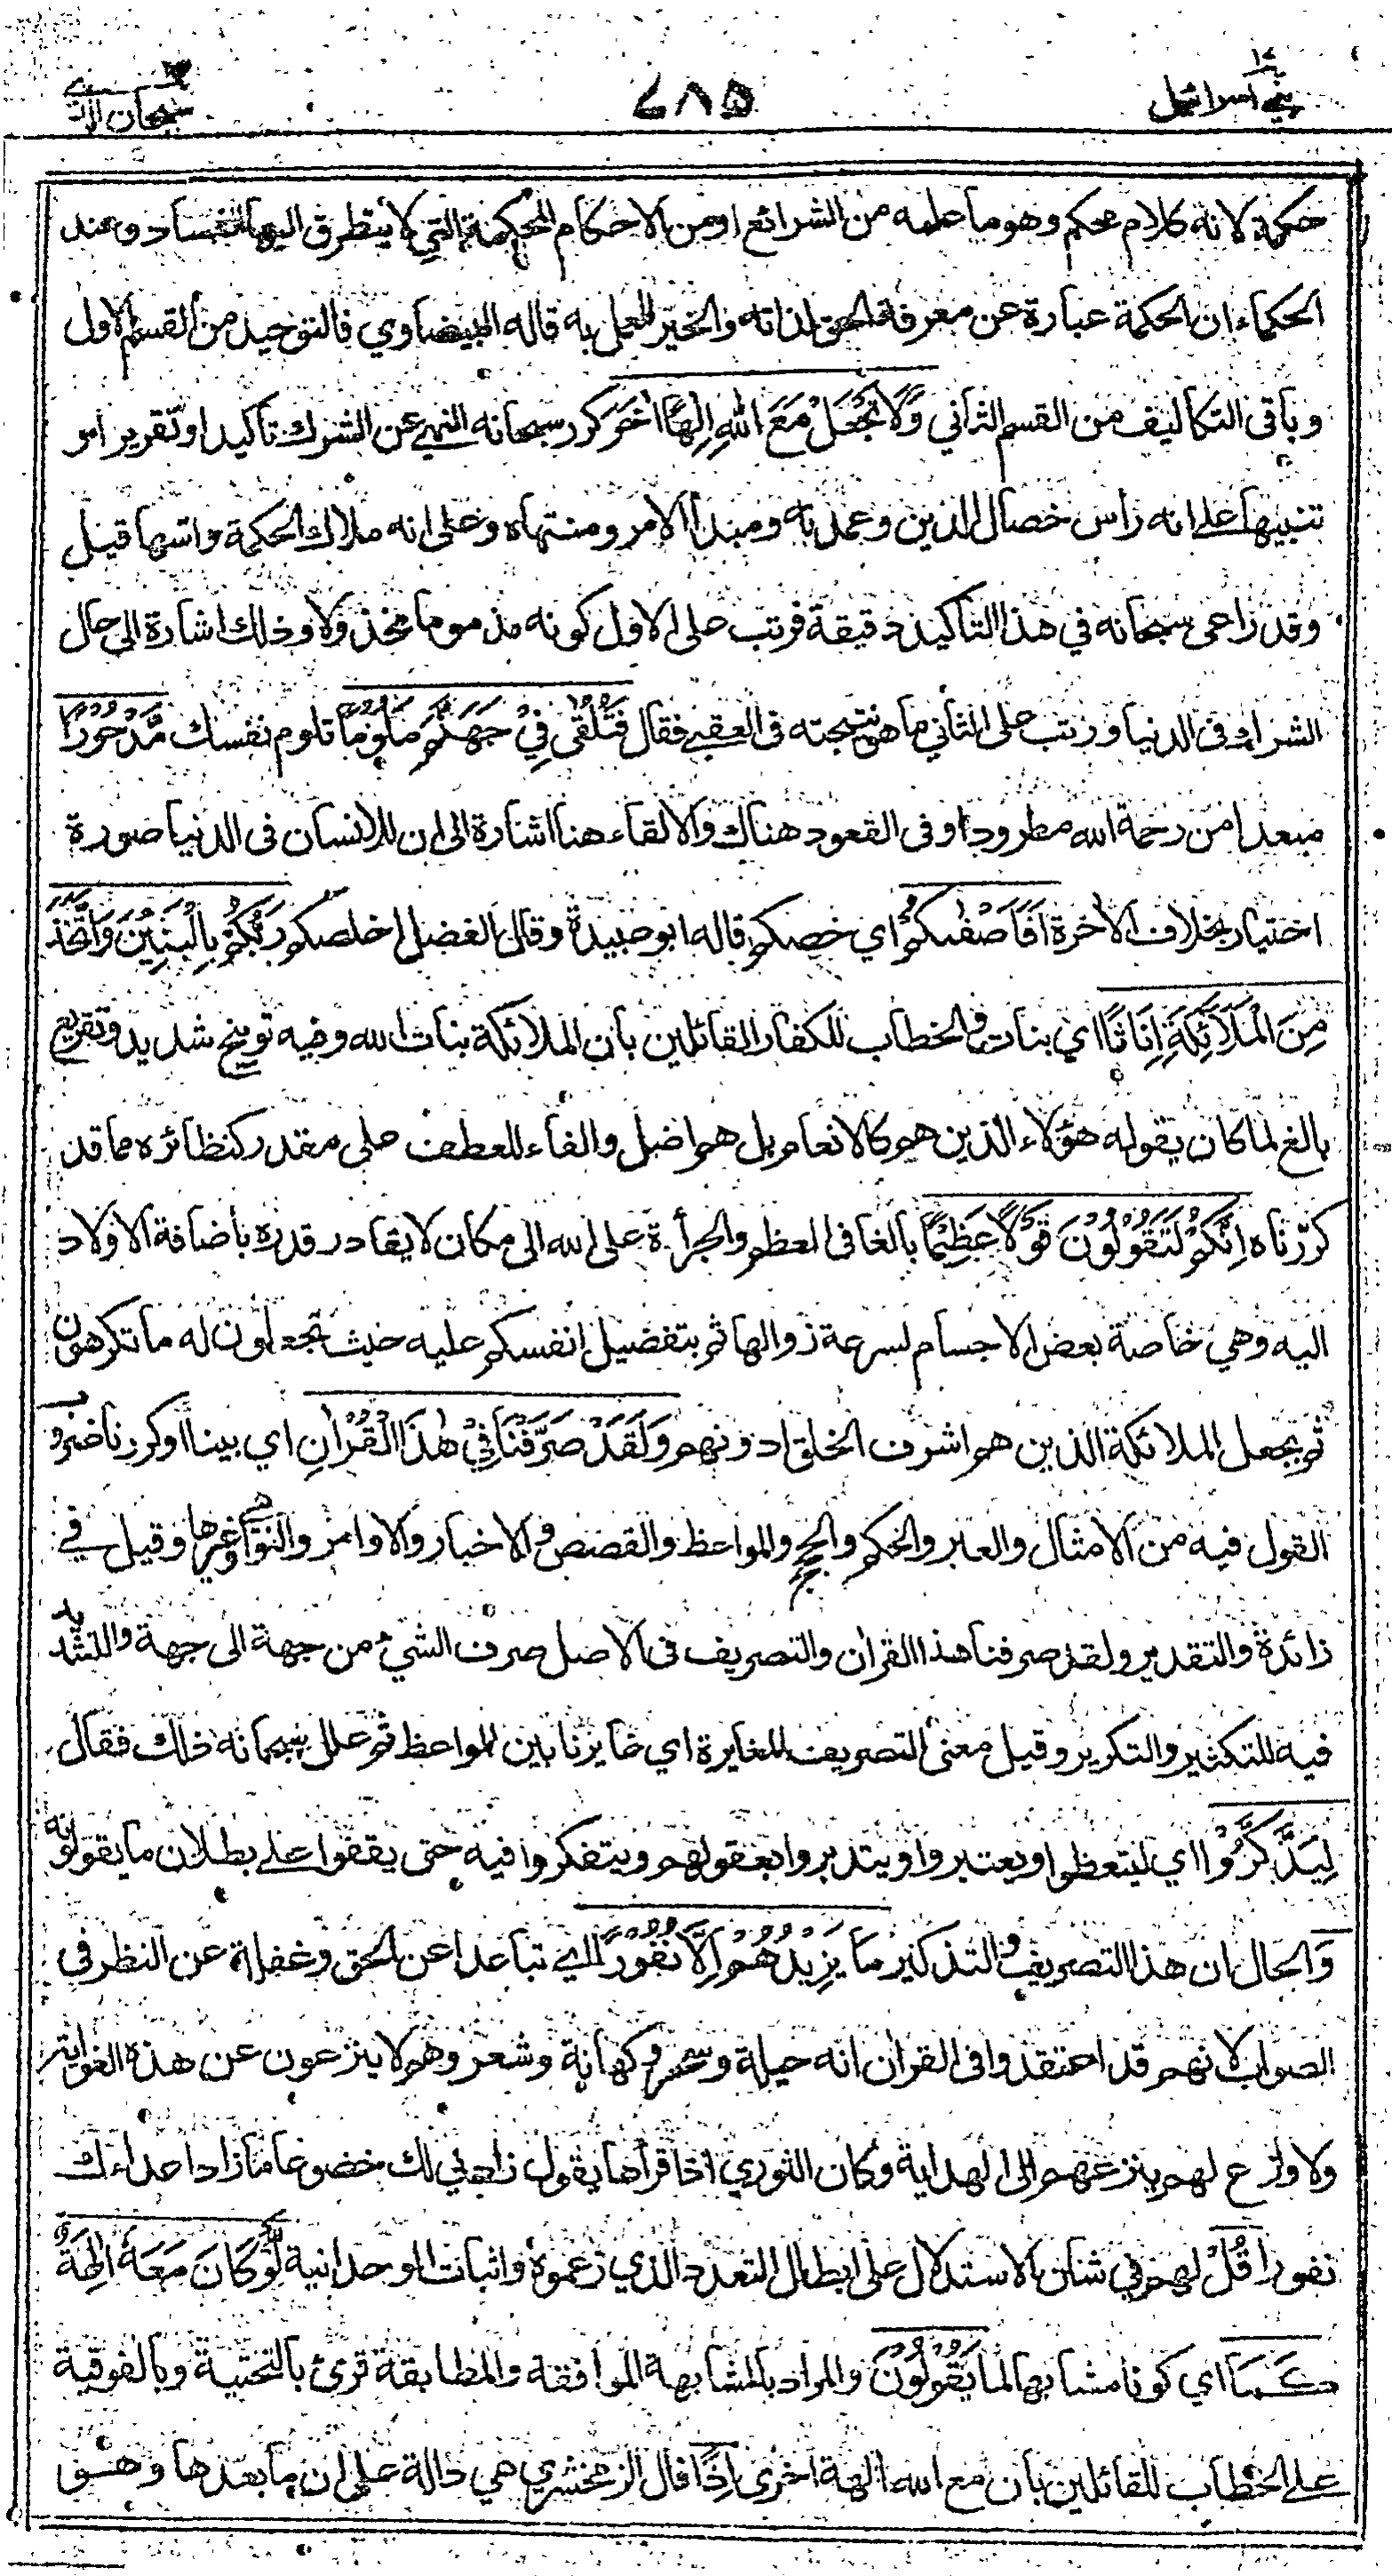 بني اسرائيل ١٧
٧٨٥
سبحان الذي
حكمة لانه كلام محكم وهو ما علمه من الشرائع او من الاحكام المحكمة التي لا يتطرق اليها الفساد وعند
الحكماء ان الحكمة عبارة عن معرفة الحق لذاته والخير للعمل به قاله البيضاوي فالتوحيد من القسم الاول
وباقي التكاليف من القسم الثاني وَلَا تَجْعَلْ مَعَ اللهِ اِلٰهًا اٰخَرَ كرر سبحانه النهي عن الشرك تاكيدا وتقرير امر
تنبيها على انه راس خصال الدين وعمدته ومبدأ الامر ومنتهاه وعلى انه ملاك الحكمة واسها قيل
وقد راعى سبحانه في هذا التاكيد دقيقة فرتب على الاول كونه مذموما مخذولا وذلك اشارة الى حال
الشرك في الدنيا ورتب على الثاني ما هو نتيجته في العقبى فقال فَتُلْقٰى فِيْ جَهَنَّمَ مَلُوْمًا تلوم نفسك مَّدْحُوْرًا
مبعدا من رحمة الله مطرودا وفي القعود هناك والالقاء هنا اشارة الى ان للانسان في الدنيا صورة
اختيار بخلاف الاخرة اَفَاَصْفٰىكُمْ اي خصكم قاله ابو عبيدة وقال الفضل اخلصكم رَبُّكُمْ بِالْبَنِيْنَ وَاتَّخَذَ
مِنَ الْمَلٰٓئِكَةِ اِنَاثًا اي بنات والخطاب للكفار القائلين بان الملائكة بنات الله وفيه توبيخ شديد وتقريع
بالغ لما كان يقوله هؤلاء الذين هم كالانعام بل هم اضل والفاء للعطف على مقدر كنظائره مما قد
كررناه اِنَّكُمْ لَتَقُوْلُوْنَ قَوْلًا عَظِيْمًا بالغا في العظم والجرأة على الله الى مكان لا يقادر قدره باضافة الاولاد
اليه وهي خاصة بعض الاجسام لسرعة زوالها ثم بتفضيل انفسكم عليه حيث تجعلون له ما تكرهون
ثم بجعل الملائكة الذين هم اشرف الخلق ادونهم وَلَقَدْ صَرَّفْنَا فِيْ هٰذَا الْقُرْاٰنِ اي بينا او كررنا ضروب
القول فيه من الامثال والعبر والحكم والحجج والمواعظ والقصص والاخبار والاوامر والنواهي وغيرها وقيل في
زائدة والتقدير ولقد صرفنا هذا القران والتصريف في الاصل صرف الشيء من جهة الى جهة والتشديد
فيه للتكثير والتكرير وقيل معنى التصريف المغايرة اي غايرنا بين المواعظ ثم علل سبحانه ذلك فقال
لِيَذَّكَّرُوْا اي ليتعظوا ويعتبروا ويتدبروا بعقولهم ويتفكروا فيه حتى يقفوا على بطلان ما يقولونه
وَ الحال ان هذا التصريف والتذكير مَا يَزِيْدُهُمْ اِلَّا نُفُوْرًا اي تباعدا عن الحق وغفلة عن النظر في
الصواب لانهم قد اعتقدوا في القران انه حيلة وسحر وكهانة وشعر وهم لا ينزعون عن هذه الغواية
ولا وازع لهم ينزعهم الى الهداية وكان الثوري اذا قرأها يقول زادني لك خضوعا ما زاد اعداءك
نفورا قُلْ لهم في شان الاستدلال على ابطال التعدد الذي زعموه واثبات الوحدانية لَّوْ كَانَ مَعَهٗ اٰلِهَةٌ
كَمَا اي كونا مشابها لما يَقُوْلُوْنَ والمراد بالمشابهة الموافقة والمطابقة قرئ بالتحتية وبالفوقية
على الخطاب للقائلين بان مع الله الهة اخرى اِذًا قال الزمخشري هي دالة على ان ما بعدها وهو